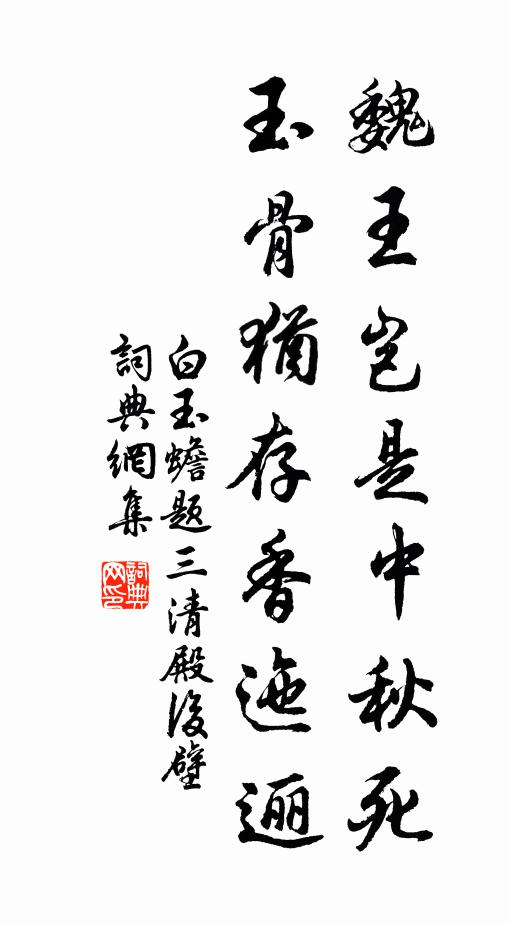 魏王岂是中秋死
玉骨猶存香迤逦
白玉蟾题三清殿後壁
詞典網集
詞典网印